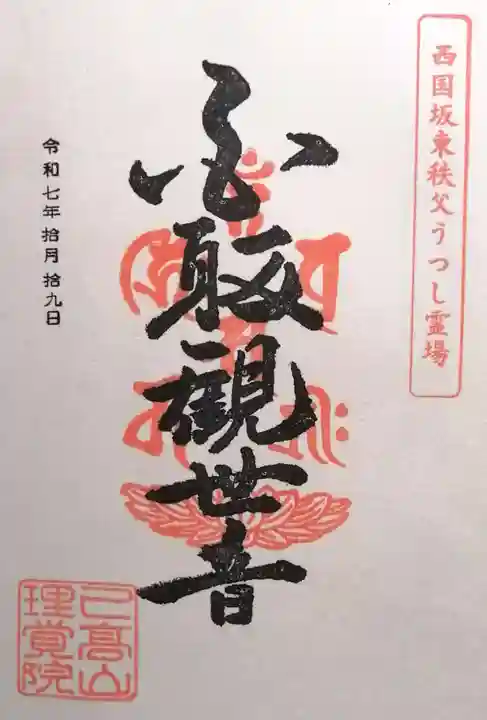 西国坂東秩父うつし霊場
観世音
令和七年 拾月 拾九日
己高山
理覚院